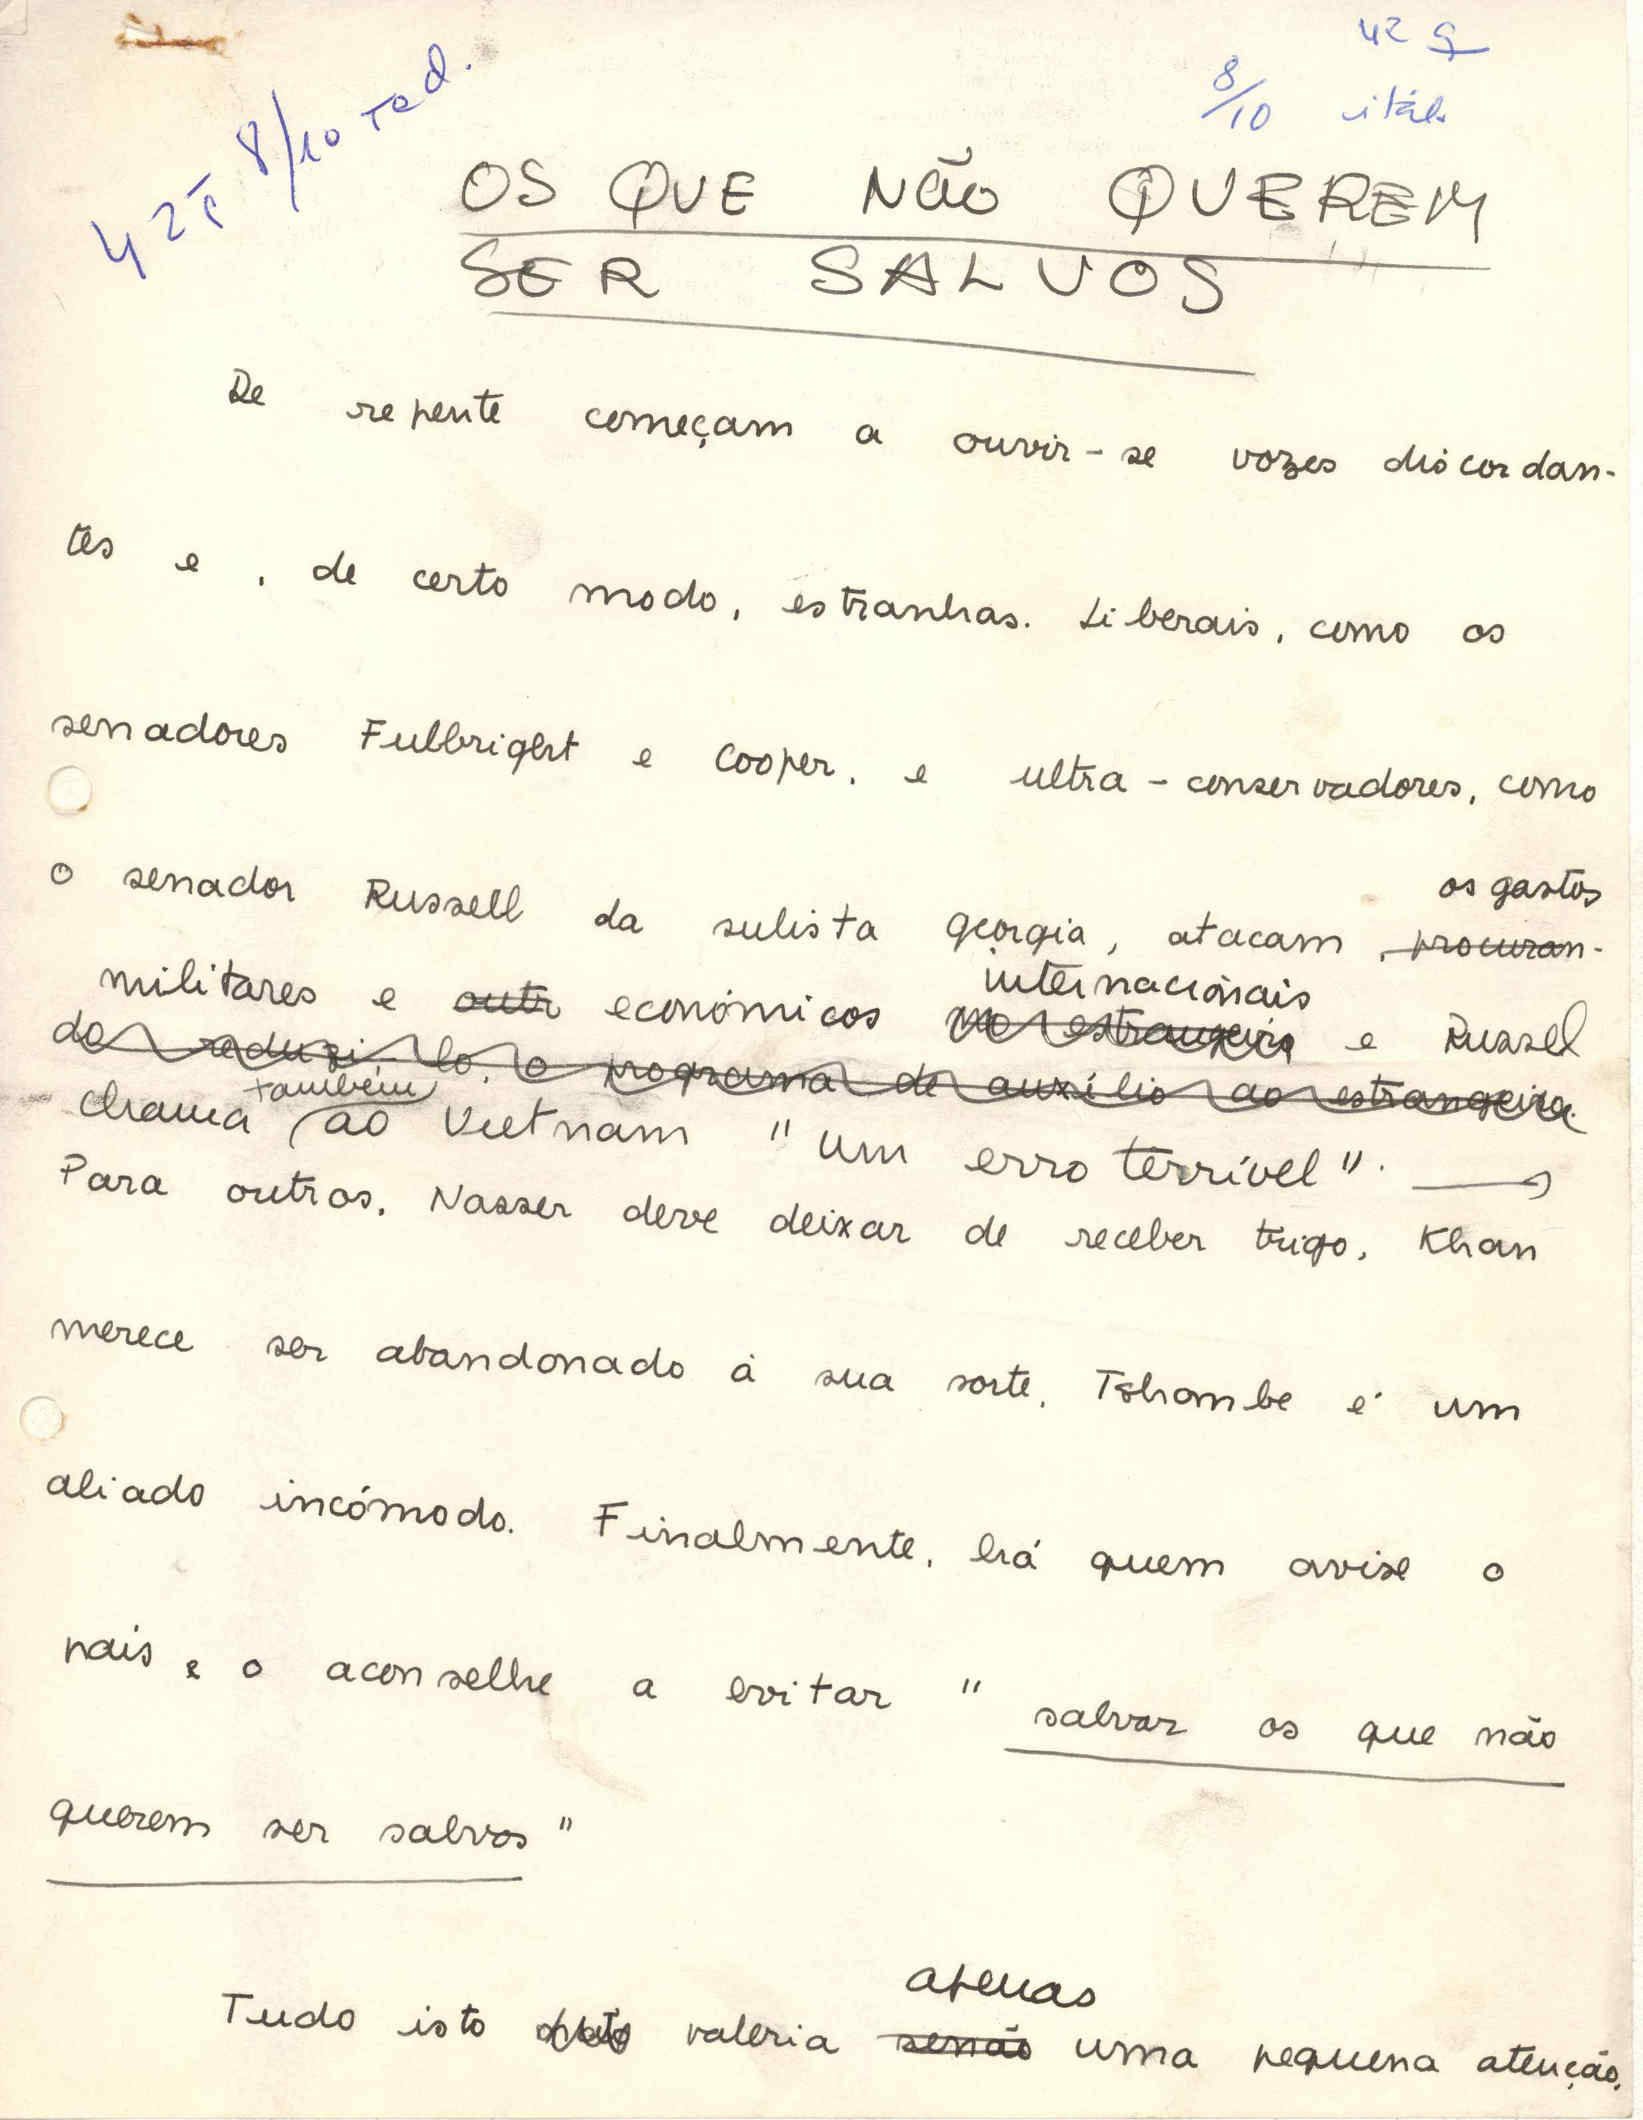 42 g
8/10 itál.
8/10 red.
OS QUE NÃO QUEREM
SER SALVOS
De repente começam a ouvir-se vozes discordan-
tes e, de certo modo, estranhas. Liberais, como os
senadores Fulbright e Cooper, e ultra-conservadores, como
os gastos
o senador Russell da sulista Geórgia, atacam, procuran-
internacionais
militares e outr económicos no estrangeiro e Russel
do reduzi-lo, o programa de auxílio ao estrangeiro.
também
chama ao Vietnam "um erro terrível".
Para outros, Nasser deve deixar de receber trigo, Khan
merece ser abandonado à sua sorte, Tshombe é um
aliado incómodo. Finalmente, há quem avise o
país e o aconselhe a evitar "salvar os que não
querem ser salvos"
apenas
Tudo isto valeria senão uma pequena atenção,